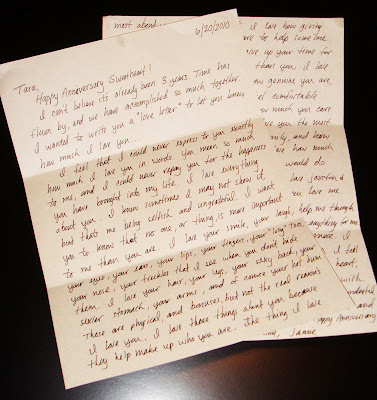 6/20/2010
Tara,
Happy Anniversary Sweetheart!
I can't believe its already been 3 years. Time has
flown by, and we have accomplished so much together.
I wanted to write you a "love letter" to let you know
how much I love you...
I feel that I could never express to you exactly
how much I love you in words. You mean so much
to me, and I could never repay you for the happiness
you have brought into my life. I love everything
about you. I know sometimes I may not show it,
but thats me being selfish and ungrateful. I want
you to know that no one, or thing, is more important
to me than you are. I love your smile, your laugh,
your eyes, your ears, your lips, your fingers, your long toes,
your nose, your freckles that I see when you don't hide
them. I love your hair, your legs, your silky back, your
sexier stomach, your arms, and of course your hot bum.
Those are physical, and bonuses, but not the real reasons
I love you. I love those things about you because
they help make up who you are. The thing I love
most about
I love how giving
are to help someone
give up your time for
than you. I love
how genuine you are,
feel comfortable
how much you care
love you the most
family, and how
how much
would do
love
love me
help me through
anything for me
more. I
I feel
heart,
with
wonderful
and
Happy Anniversary
Jamie